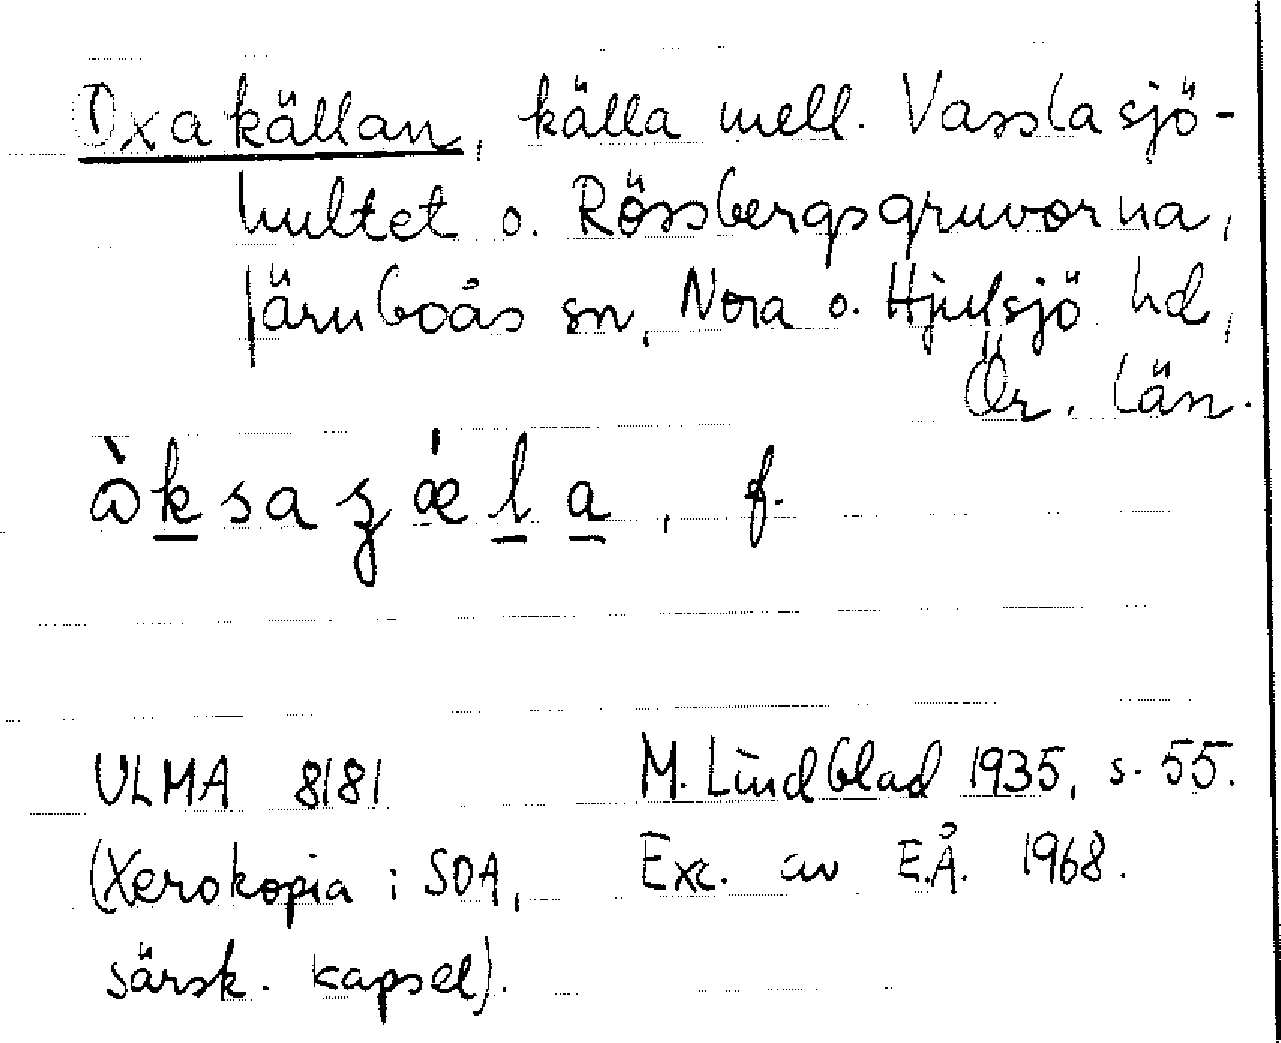 Oxakällan, källa mell. Vasslasjö-
hultet o. Rössbergsgruvorna,
Järnboås sn, Nora o. Hjulsjö hd,
Ör. län.
f.
ULMA 8181 M. Lindblad 1935, s. 55.
(Xerokopia i SOA, Exc. av E.Å. 1968.
särsk. kapsel).